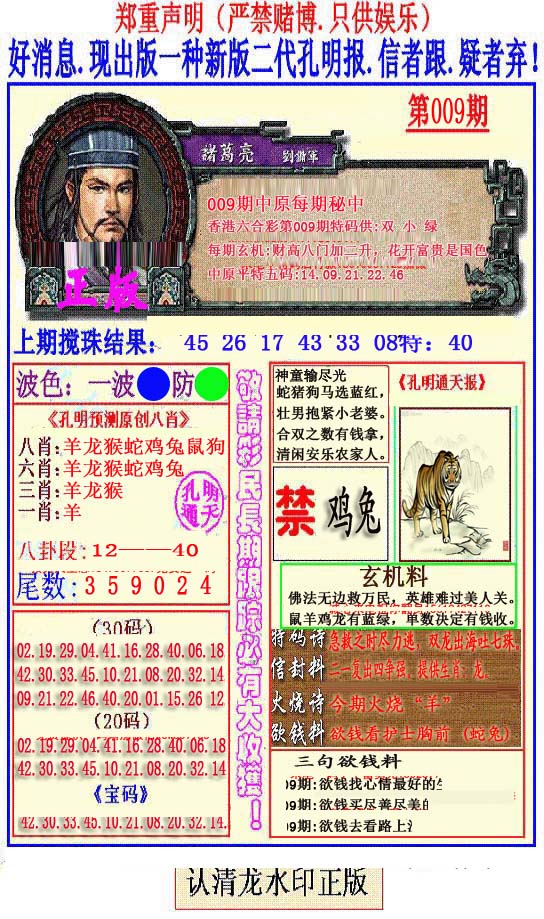 郑重声明（严禁赌博.只供娱乐）
好消息.现出版一种新版二代孔明报.信者跟.疑者弃!
第009期
諸葛亮 劉備軍
009期中原每期秘中
香港六合彩第009期特码供:双 小 绿
每期玄机:财高八门加二升，花开富贵是国色
中原平特五码:14.09.21.22.46
正版
上期搅珠结果： 45 26 17 43 33 08特：40
波色：一波 防
《孔明预测原创八肖》
八肖:羊龙猴蛇鸡兔鼠狗
六肖:羊龙猴蛇鸡兔
三肖:羊龙猴
一肖:羊
孔明通天
八卦段:12——40
尾数:359024
(30码)
02.19.29.04.41.16.28.40.06.18
42.30.33.45.10.21.08.20.32.14
09.21.22.46.40.20.01.15.26 12
(20码)
02.19.29.04.41.16.28.40.06.18
42.30.33.45.10.21.08.20.32.14
《宝码》
42.30.33.45.10.21.08.20.32.14.
敬請彩民長期跟踪必有大收獲！
神童输尽光
蛇猪狗马选蓝红，
壮男抱紧小老婆。
合双之数有钱拿，
清闲安乐农家人。
《孔明通天报》
禁 鸡兔
玄机料
佛法无边救万民，英雄难过美人关。
鼠羊鸡龙有蓝绿，单数决定有钱收。
特码诗 急救之时尽力逃，双龙出海吐七珠.
信封料 二一复出四争强。提供生肖：龙.
火烧诗 今期火烧“羊”
欲钱料 欲钱看护士胸前（蛇兔）
三句欲钱料
09期:欲钱找心情最好的
09期:欲钱买尽善尽美的
09期:欲钱去看路上
认清龙水印正版